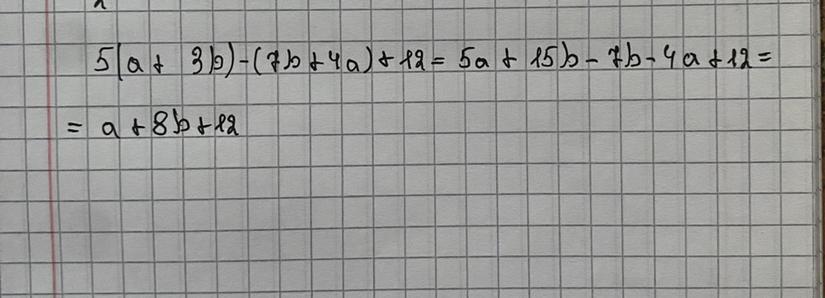 5(a + 3b) - (7b + 4a) + 12 = 5a + 15b - 7b - 4a + 12 =
= a + 8b + 12